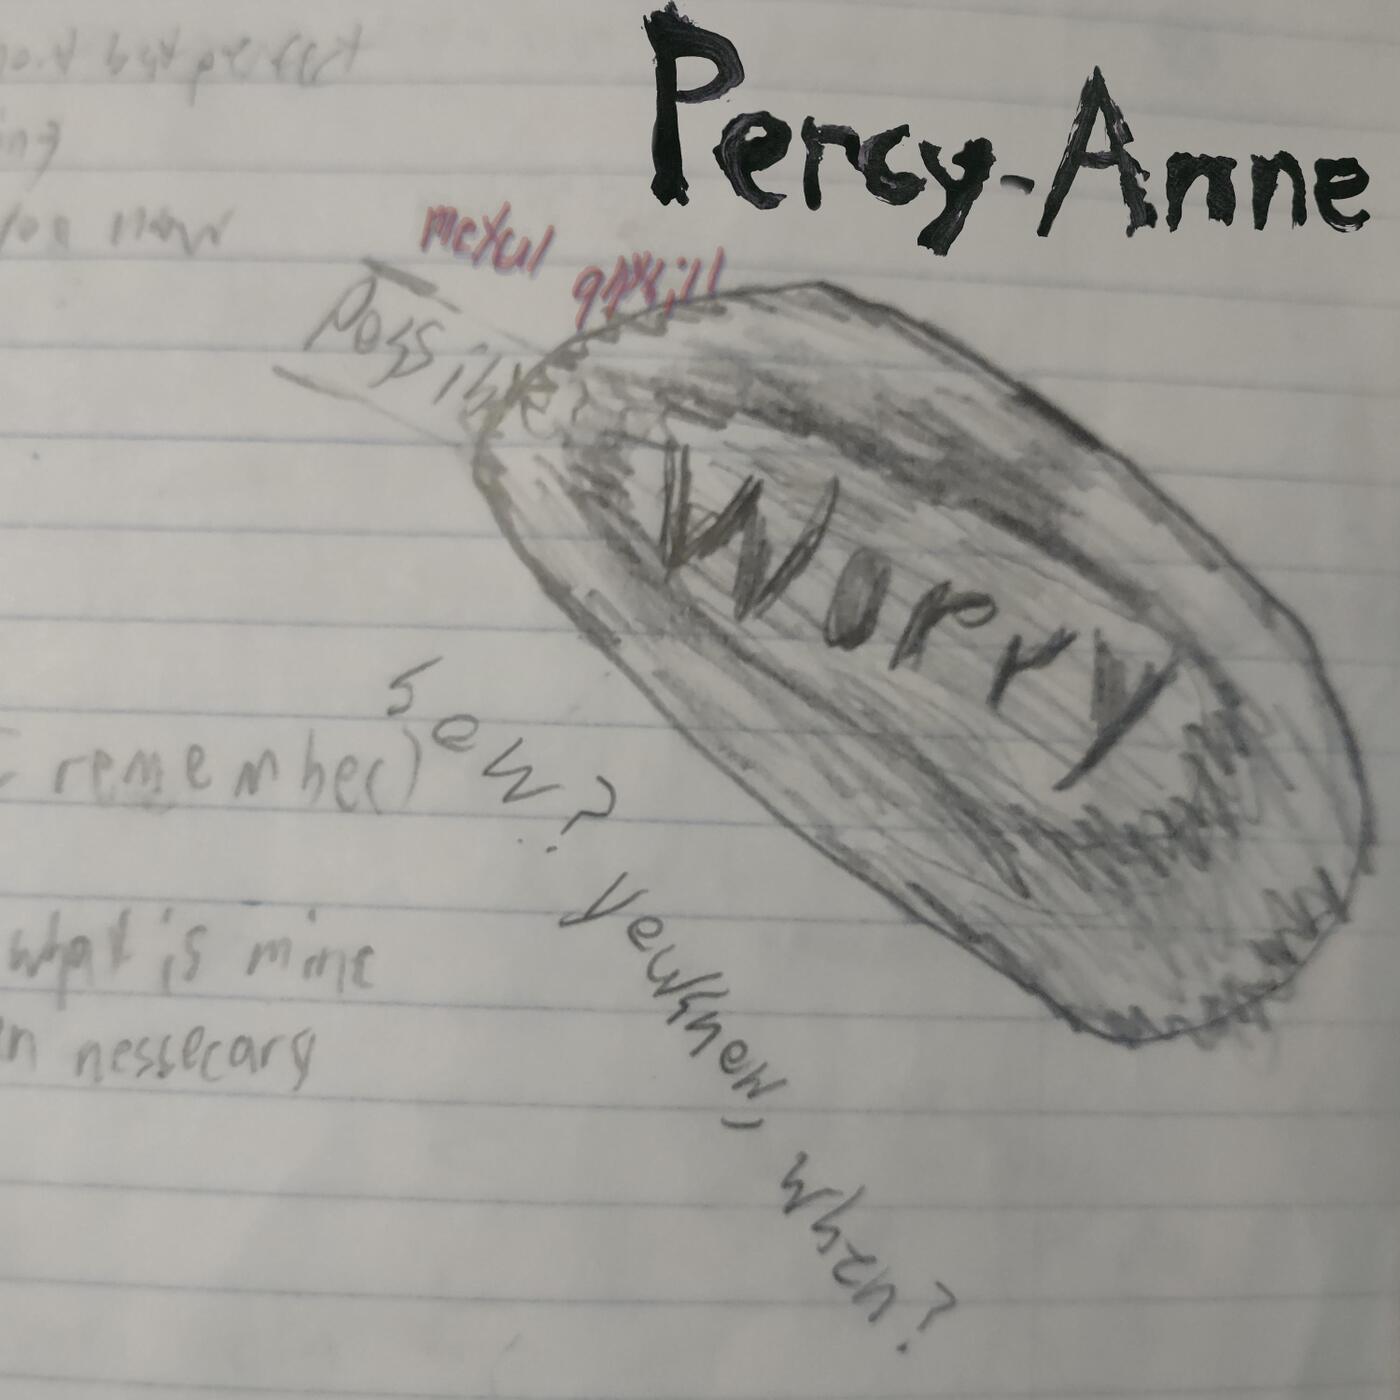 Percy-Anne
but perfect
ing
you now
metal
Possible?
Worry
sew? yewknew, when?
remember)
what is mine
n nessecary